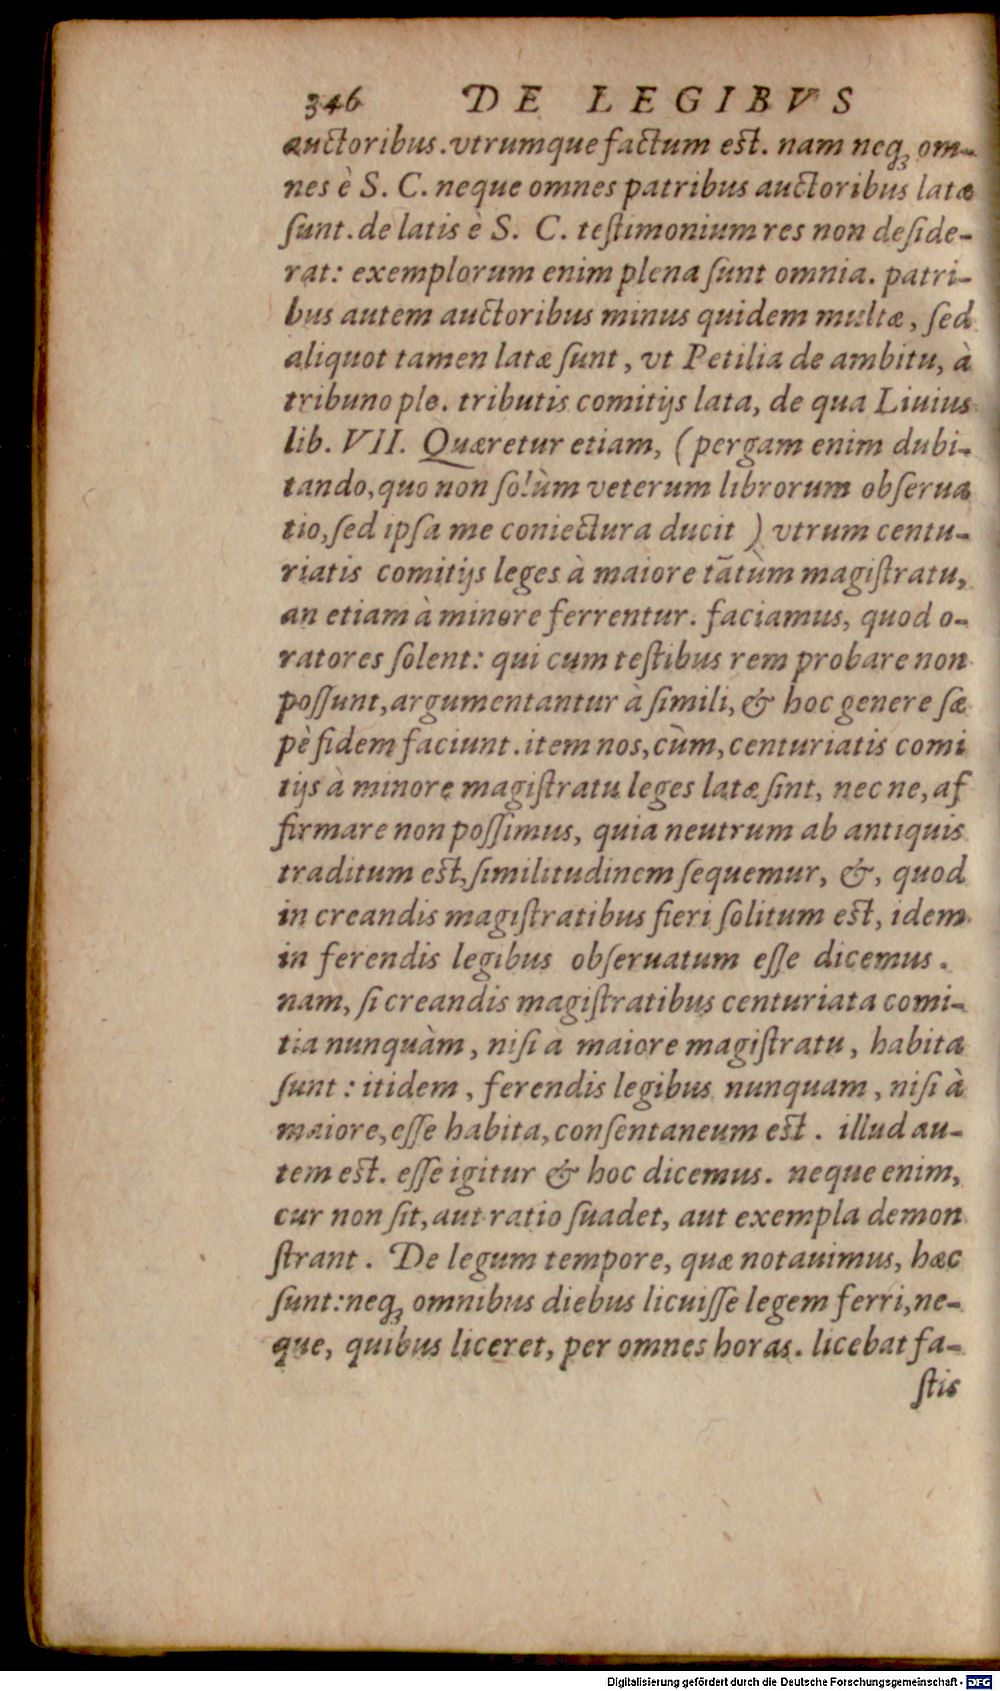 346 DE LEGIBVS
auctoribus. vtrumque factum est. nam neq; om-
nes è S. C. neque omnes patribus auctoribus latæ
ſunt. de latis è S. C. teſtimonium res non deſide-
rat: exemplorum enim plena ſunt omnia. patri-
bus autem auctoribus minus quidem multæ, ſed
aliquot tamen latæ ſunt, vt Petilia de ambitu, à
tribuno ple. tributis comitijs lata, de qua Liuius
lib. VII. Quæretur etiam, (pergam enim dubi-
tando, quo non ſolùm veterum librorum obſerua
tio, ſed ipſa me coniectura ducit) vtrum centu-
riatis comitijs leges à maiore tãtùm magiſtratu,
an etiam à minore ferrentur. faciamus, quod o-
ratores ſolent: qui cum teſtibus rem probare non
poſſunt, argumentantur à ſimili, & hoc genere ſæ
pè fidem faciunt. item nos, cùm, centuriatis comi
tijs à minore magiſtratu leges latæ ſint, nec ne, af
firmare non poſſimus, quia neutrum ab antiquis
traditum est, ſimilitudinem ſequemur, &, quod
in creandis magiſtratibus fieri ſolitum est, idem
in ferendis legibus obſeruatum eſſe dicemus.
nam, ſi creandis magiſtratibus centuriata comi-
tia nunquàm, niſi à maiore magiſtratu, habita
ſunt: itidem, ferendis legibus nunquam, niſi à
maiore, eſſe habita, conſentaneum est. illud au-
tem est. eſſe igitur & hoc dicemus. neque enim,
cur non ſit, aut ratio ſuadet, aut exempla demon
ſtrant. De legum tempore, quæ notauimus, hæc
ſunt: neq; omnibus diebus licuiſſe legem ferri, ne-
que, quibus liceret, per omnes horas. licebat fa-
ſtis
Digitalisierung gefördert durch die Deutsche Forschungsgemeinschaft - DFG